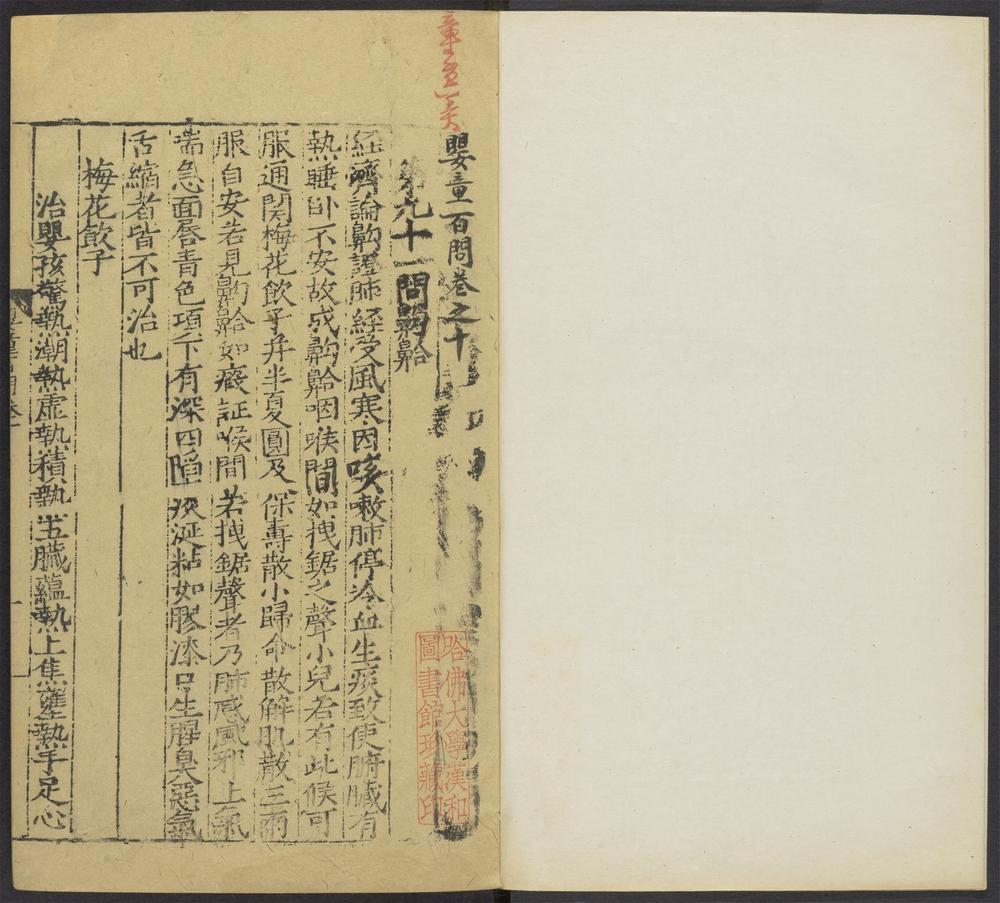 嬰童百問卷之十
第九十一問齁䶎
経濟論齁證肺經受風寒因咳嗽肺停冷血生痰致使腑臓有
熱睡卧不安故成齁䶎咽喉間如拽鋸之聲小兒若有此候可
服通関梅花飲子并半夏圓及保壽散小歸命散解肌散三兩
服自安若見齁䶎如癡証喉間若拽鋸聲者乃肺感風邪上氣
喘急面唇青色項下有深凹陷痰涎粘如膠漆口生腥臭惡氣
舌縮者皆不可治也
梅花飲子
治嬰孩驚熱潮熱虛熱積熱五臓蘊熱上焦壅熱手足心
哈佛大學漢和
圖書館珍藏印